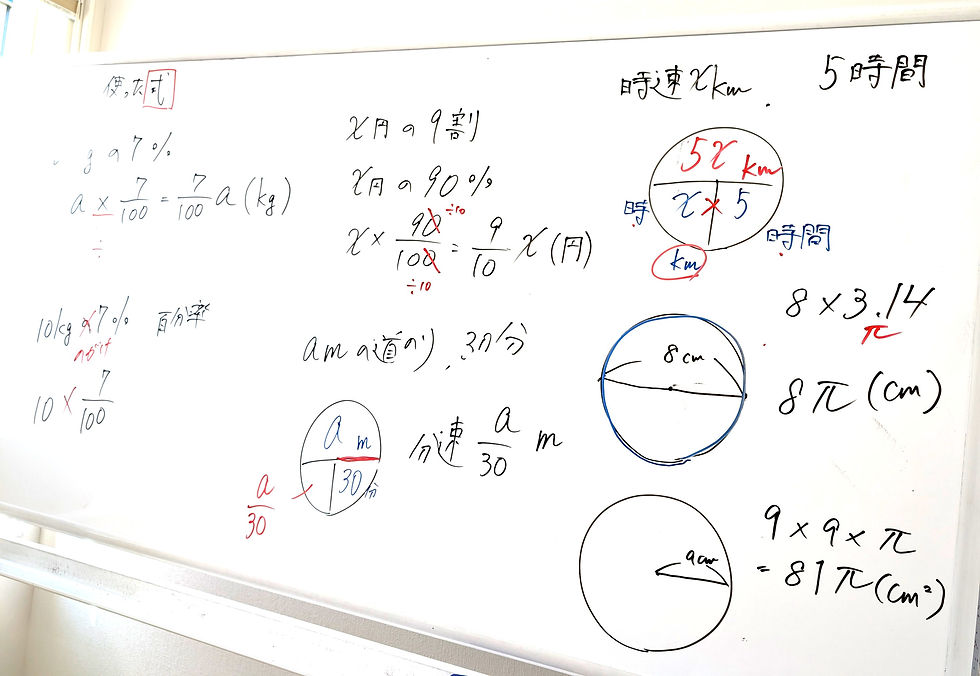 使った式
gの7%
a × 7/100 = 7/100 a (kg)
÷
10kgの7% 百分率
のがけ
10 × 7/100
x円の9割
x円の90%
x × 90/100 = 9/10 x (円)
÷10
÷10
amの道のり, 30分
a m
30分
a/30 ×
分速 a/30 m
時速xkm. 5時間
5x km
x × 5
時
時間
km
8cm
8 × 3.14
π
8π (cm)
9cm
9 × 9 × π
= 81π (cm²)